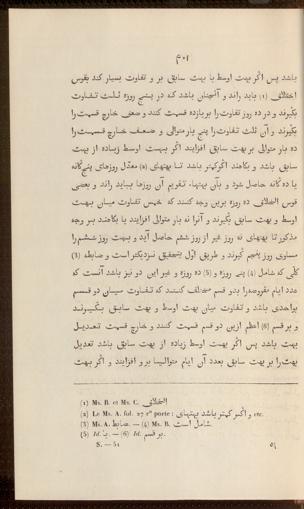 ۴۰۱
باشد پس اگر بهت اوسط با بهت سابق بر و تفاوت بسیار کند بقوس
اختلاف (1) باید راند و آنچنان باشد که در پنج روزه ثلث تفاوت
بگیرند و در ده روز تفاوت را بر یازده قسمت کنند و ضعف خارج قسمت را
بگیرند و آن ثلث تفاوت را پنج بار متوالی و ضعف خارج قسمت را
ده بار متوالی بر بهت سابق افزایند اگر بهت اوسط زیاده از بهت
سابق باشد و بکاهند اگر کمتر باشد تا بهتهای (2) معدل روزهای پنج گانه
یا ده گانه حاصل شود و بآن بهتها، تقویم آن روزها بیابد راند و بعضی
قوس اختلاف ده روزه برین وجه کنند که خمس تفاوت میان بهت
اوسط و بهت سابق بگیرند و آنرا نه بار متوالی افزایند یا بکاهند بر وجه
مذکور تا بهتهای نه روز غیر از روز ششم حاصل آید و بهت روز ششم را
مساوی روز پنجم گیرند و طریق اول بتحقیق نزدیکتر است و ضابطه (3)
کلی که شامل (4) پنج روزه و (5) ده روزه و غیر این دو نیز باشد آنست که
عدد ایام مفروضه را بدو قسم مختلف کنند که تفاوت میان دو قسم
بواحدی باشد و تفاوت میان بهت اوسط و بهت سابق بگیرند
و بر قسم (6) اعظم ازین دو قسم قسمت کنند و خارج قسمت تعدیل
بهت باشد پس اگر بهت اوسط زیاده از بهت سابق باشد تعدیل
بهت را بر بهت سابق بعدد آن ایام متوالیا بر و افزایند و اگر بهت
(1) Ms. B. et Ms. C. اختلاف
(2) Le Ms. A. fol. 27 rº porte : و اگر کمتر باشد بهتهای etc.
(3) Ms. A. ضابط. — (4) Ms. B. شامل است.
(5) Id. یا. — (6) Id. بر قسم.
S. — 51
۵۱